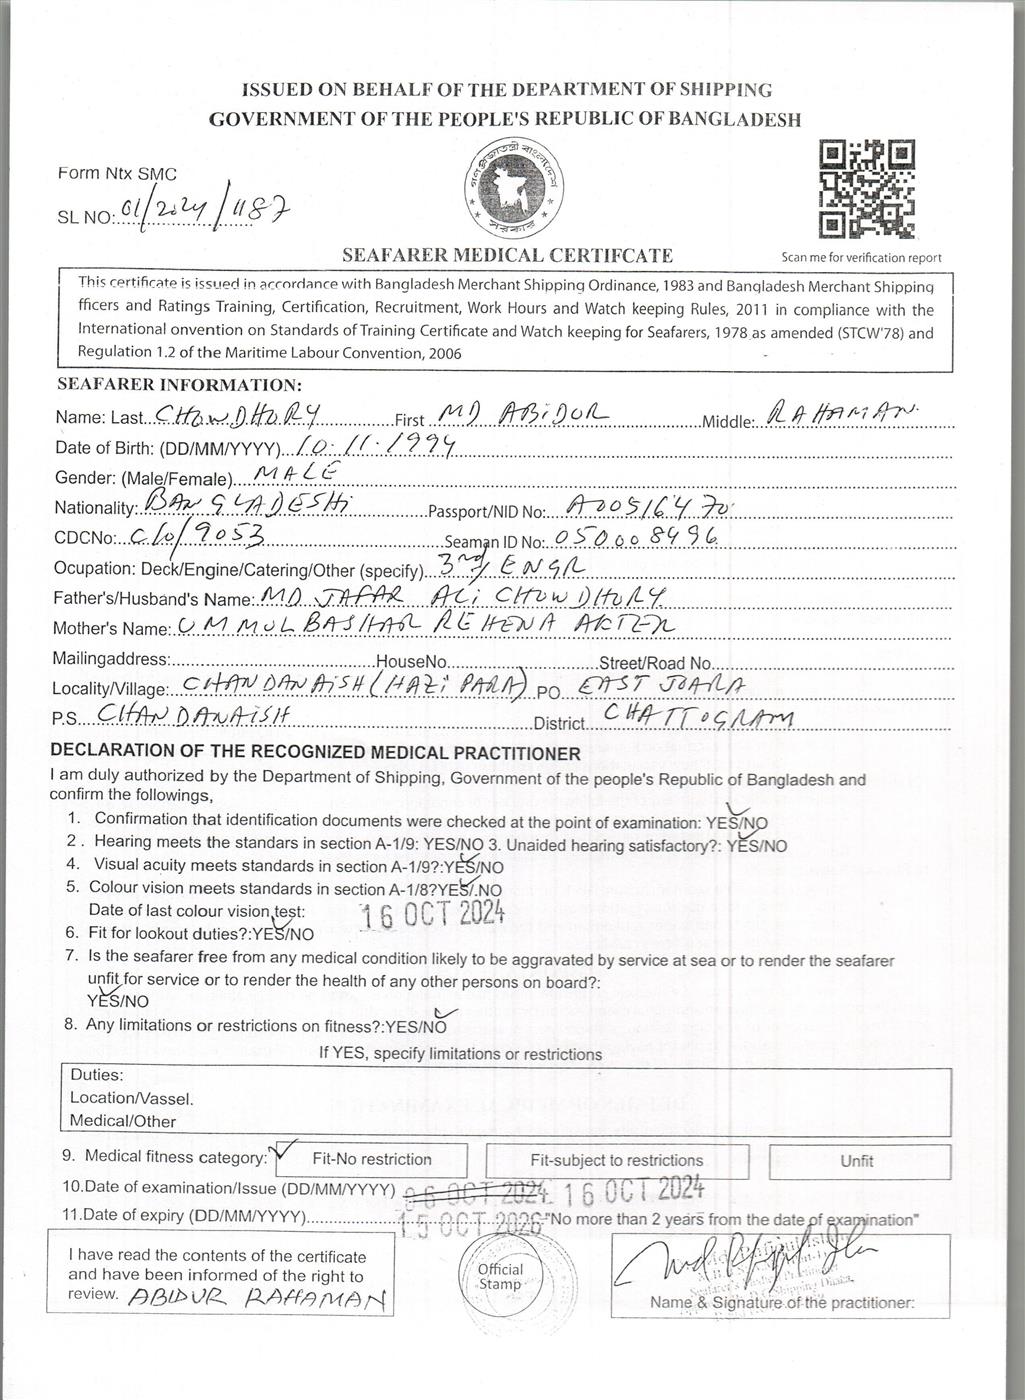 ISSUED ON BEHALF OF THE DEPARTMENT OF SHIPPING
GOVERNMENT OF THE PEOPLE'S REPUBLIC OF BANGLADESH
গণপ্রজাতন্ত্রী বাংলাদেশ
সরকার
Form Ntx SMC
SL NO: 01/2024/1187
SEAFARER MEDICAL CERTIFCATE
Scan me for verification report
This certificate is issued in accordance with Bangladesh Merchant Shipping Ordinance, 1983 and Bangladesh Merchant Shipping
fficers and Ratings Training, Certification, Recruitment, Work Hours and Watch keeping Rules, 2011 in compliance with the
International onvention on Standards of Training Certificate and Watch keeping for Seafarers, 1978 as amended (STCW'78) and
Regulation 1.2 of the Maritime Labour Convention, 2006
SEAFARER INFORMATION:
Name: Last CHOWDHURY First MD ABIDUR Middle: RAHAMAN
Date of Birth: (DD/MM/YYYY) 10.11.1994
Gender: (Male/Female) MALE
Nationality: BANGLADESHi Passport/NID No: A00516470
CDCNo: C/O/9053 Seaman ID No: 050008496
Ocupation: Deck/Engine/Catering/Other (specify) 3rd/ENGR
Father's/Husband's Name: MD JAFAR ALi CHOWDHURY
Mother's Name: UMMUL BASHAR REHENA AKTER
Mailingaddress: HouseNo Street/Road No
Locality/Village: CHANDANAiSH (HAZi PARA) PO EAST JOARA
P.S CHANDANAiSH District CHATTOGRAM
DECLARATION OF THE RECOGNIZED MEDICAL PRACTITIONER
I am duly authorized by the Department of Shipping, Government of the people's Republic of Bangladesh and
confirm the followings,
1. Confirmation that identification documents were checked at the point of examination: YES/NO
2 . Hearing meets the standars in section A-1/9: YES/NO 3. Unaided hearing satisfactory?: YES/NO
4. Visual acuity meets standards in section A-1/9?:YES/NO
5. Colour vision meets standards in section A-1/8?YES/.NO
Date of last colour vision test: 16 OCT 2024
6. Fit for lookout duties?:YES/NO
7. Is the seafarer free from any medical condition likely to be aggravated by service at sea or to render the seafarer
unfit for service or to render the health of any other persons on board?:
YES/NO
8. Any limitations or restrictions on fitness?:YES/NO
If YES, specify limitations or restrictions
Duties:
Location/Vassel.
Medical/Other
9. Medical fitness category: Fit-No restriction Fit-subject to restrictions Unfit
10.Date of examination/Issue (DD/MM/YYYY) 06 OCT 2024 16 OCT 2024
11.Date of expiry (DD/MM/YYYY) 15 OCT 2026 "No more than 2 years from the date of examination"
I have read the contents of the certificate
and have been informed of the right to
review. ABIDUR RAHAMAN
Official
Stamp
Name & Signature of the practitioner: